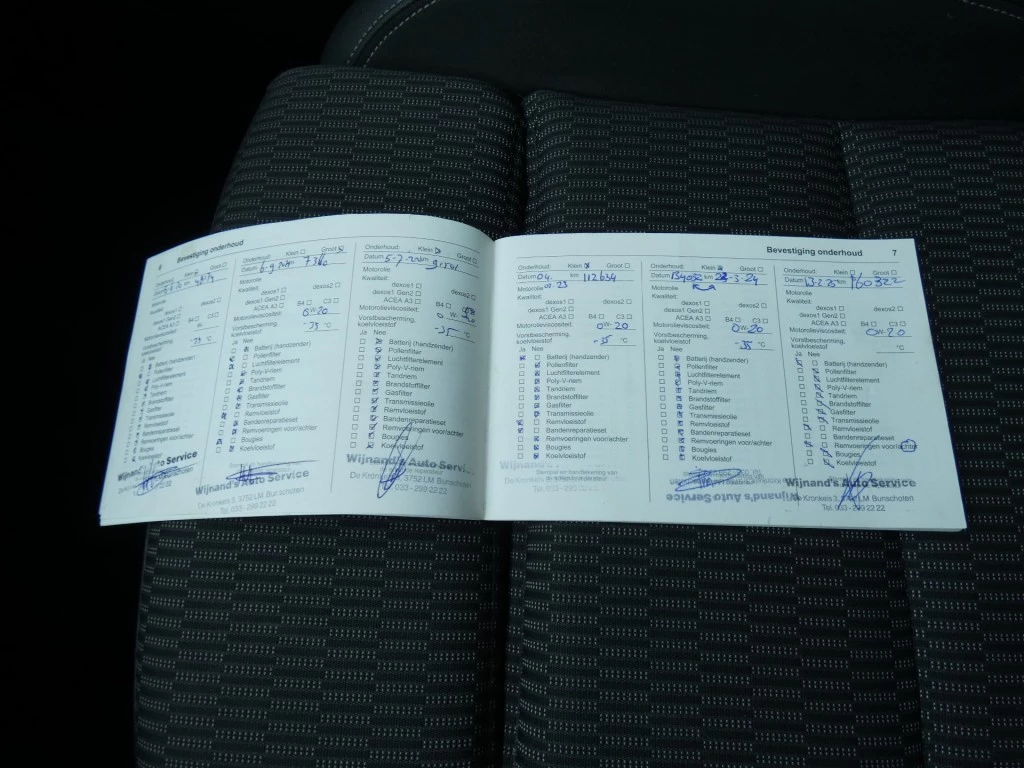 6 Bevestiging onderhoud
Klein Groot
Motorolie
Kwaliteit:
dexos1
dexos2
dexos1 Gen2
ACEA A3
B4
Motorolieviscositeit:
Vorstbescherming,
koelvloeistof
Ja Nee
Batterij (handzender)
Pollenfilter
Luchtfilterelement
Poly-V-riem
Tandriem
Brandstoffilter
Gasfilter
Transmissieolie
Remvloeistof
Bandenreparatieset
Remvoeringen voor/achter
Bougies
Koelvloeistof
Auto Service
Onderhoud: Klein Groot
Datum
Motorolie
Kwaliteit:
dexos1
dexos2
dexos1 Gen2
ACEA A3 B4 C3
Motorolieviscositeit: 0W-20
Vorstbescherming,
koelvloeistof °C
Ja Nee
Batterij (handzender)
Pollenfilter
Luchtfilterelement
Poly-V-riem
Tandriem
Brandstoffilter
Gasfilter
Transmissieolie
Remvloeistof
Bandenreparatieset
Remvoeringen voor/achter
Bougies
Koelvloeistof
Wijnand's Auto Service
De Kronkels 3, 3752 LM Bunschoten
Tel. 033 - 299 22 22
Onderhoud: Klein Groot
Datum 5-7
Motorolie
Kwaliteit:
dexos1
dexos2
dexos1 Gen2
ACEA A3 B4
Motorolieviscositeit:
Vorstbescherming,
koelvloeistof -35 °C
Ja Nee
Batterij (handzender)
Pollenfilter
Luchtfilterelement
Poly-V-riem
Tandriem
Brandstoffilter
Gasfilter
Transmissieolie
Remvloeistof
Bandenreparatieset
Remvoeringen voor/achter
Bougies
Koelvloeistof
Wijnand's Auto Servi
De Kronkels 3, 3752 LM
033 - 299 22 22
Bevestiging onderhoud 7
Onderhoud: Klein Groot
Datum 04- km 112634
Motorolie 02-23
Kwaliteit:
dexos1
dexos2
dexos1 Gen2
ACEA A3 B4 C3
Motorolieviscositeit: 0W-20
Vorstbescherming,
koelvloeistof -35 °C
Ja Nee
Batterij (handzender)
Pollenfilter
Luchtfilterelement
Poly-V-riem
Tandriem
Brandstoffilter
Gasfilter
Transmissieolie
Remvloeistof
Bandenreparatieset
Remvoeringen voor/achter
Bougies
Koelvloeistof
Wijnand's
Stempel en handtekening van
Onderhoud: Klein Groot
Datum km -3-24
Motorolie
Kwaliteit:
dexos1
dexos2
dexos1 Gen2
ACEA A3 B4 C3
Motorolieviscositeit: 0W-20
Vorstbescherming,
koelvloeistof -35 °C
Ja Nee
Batterij (handzender)
Pollenfilter
Luchtfilterelement
Poly-V-riem
Tandriem
Brandstoffilter
Gasfilter
Transmissieolie
Remvloeistof
Bandenreparatieset
Remvoeringen voor/achter
Bougies
Koelvloeistof
Wijnand's Auto Service
Onderhoud: Klein Groot
Datum km 160322
Motorolie
Kwaliteit:
dexos1
dexos2
dexos1 Gen2
ACEA A3 B4 C3
Motorolieviscositeit: 0W-20
Vorstbescherming,
koelvloeistof °C
Ja Nee
Batterij (handzender)
Pollenfilter
Luchtfilterelement
Poly-V-riem
Tandriem
Brandstoffilter
Gasfilter
Transmissieolie
Remvloeistof
Bandenreparatieset
Remvoeringen voor/achter
Bougies
Koelvloeistof
Wijnand's Auto Service
De Kronkels 3, 3752 LM Bunschoten
Tel. 033 - 299 22 22